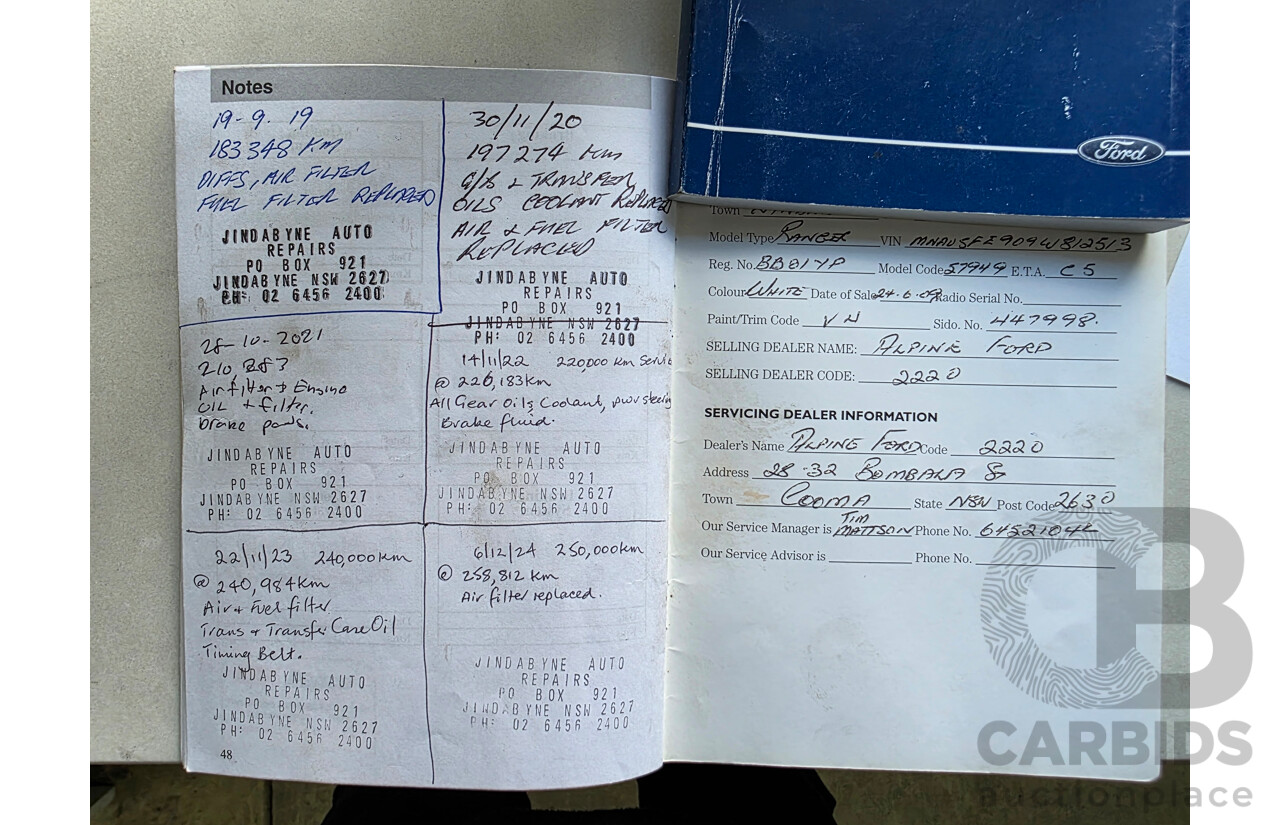 Notes
19-9.19
183348 Km
DIFFS, AIR FILTER
FUEL FILTER REPLACED
JINDABYNE AUTO
REPAIRS
PO BOX 921
JINDABYNE NSW 2627
PH: 02 6456 2400
30/11/20
197274 km
G/B & TRANSFER
OILS COOLANT REPLACED
AIR & FUEL FILTER
REPLACED
JINDABYNE AUTO
REPAIRS
PO BOX 921
JINDABYNE NSW 2627
PH: 02 6456 2400
28-10-2021
210,283
Air filter + Engine
OIL + filter.
brake pads.
JINDABYNE AUTO
REPAIRS
PO BOX 921
JINDABYNE NSW 2627
PH: 02 6456 2400
14/11/22 220,000 km Service
@ 226,183km
All Gear Oils, Coolant, pwr steering
Brake fluid.
JINDABYNE AUTO
REPAIRS
PO BOX 921
JINDABYNE NSW 2627
PH: 02 6456 2400
22/11/23 240,000km
@ 240,984km
Air + Fuel filter
Trans + Transfer Case Oil
Timing Belt.
JINDABYNE AUTO
REPAIRS
PO BOX 921
JINDABYNE NSW 2627
PH: 02 6456 2400
6/12/24 250,000km
@ 258,812 km
Air filter replaced.
JINDABYNE AUTO
REPAIRS
PO BOX 921
JINDABYNE NSW 2627
PH: 02 6456 2400
48
Ford
Town
Model Type RANGER VIN MNAUSFE909W812513
Reg. No. BB81YP Model Code 57949 E.T.A. C5
Colour WHITE Date of Sale 24.6.09 Radio Serial No.
Paint/Trim Code Sido. No. 447998.
SELLING DEALER NAME: ALPINE FORD
SELLING DEALER CODE: 2220
SERVICING DEALER INFORMATION
Dealer's Name ALPINE FORD Code 2220
Address 28-32 BOMBALA St
Town COOMA State NSW Post Code 2630
Our Service Manager is TIM MATTSON Phone No. 64521044
Our Service Advisor is Phone No.
CB
CARBIDS
auctionplace